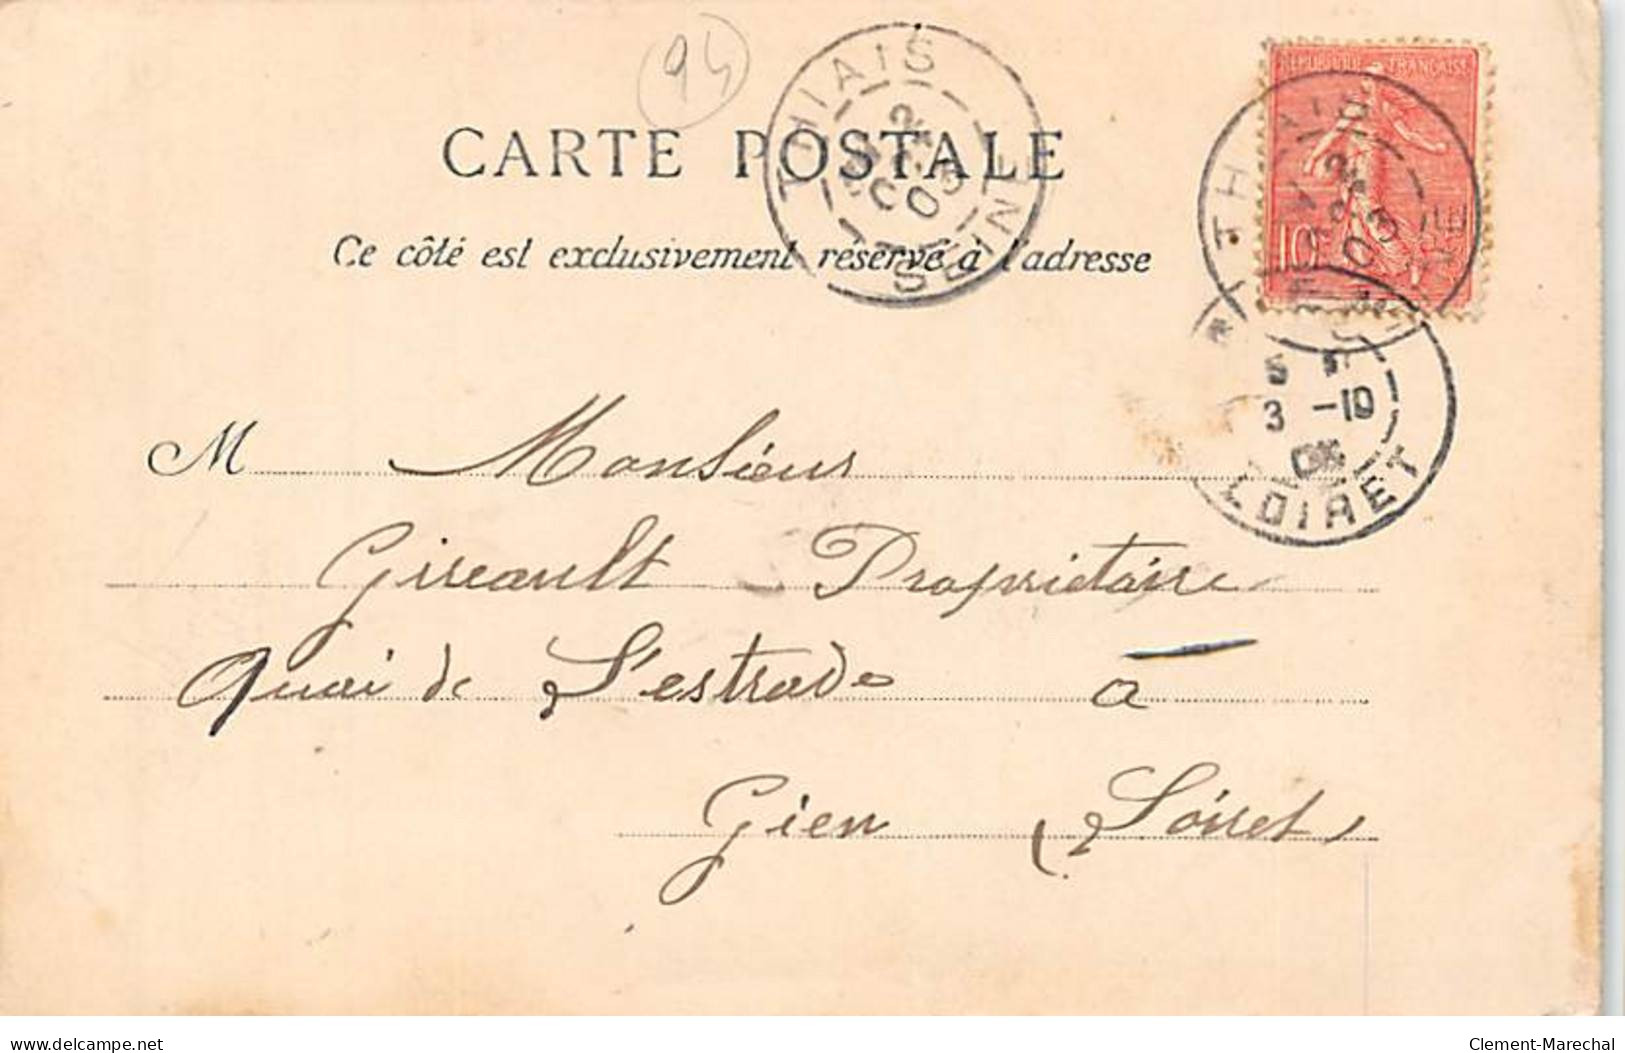 94
THIAIS
2
OCT
03
SEINE
RÉPUBLIQUE FRANÇAISE
10
THIAIS
2
03
SEINE
CARTE POSTALE
Ce côté est exclusivement réservé à l'adresse
3 -10
LOIRET
M Monsieur
Gireault Propriétaire
Quai de L'estrade à
Gien (Loiret)
www.delcampe.net
Clement-Marechal